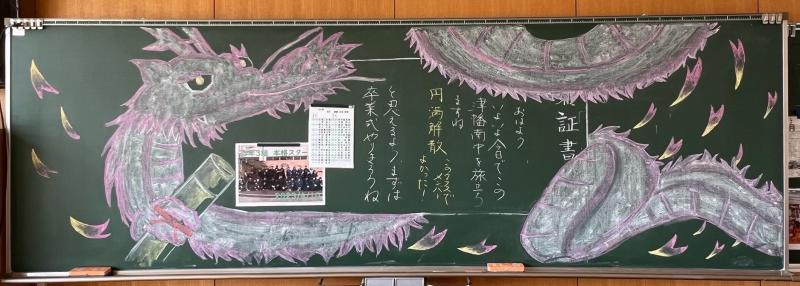 証書
おはよう
いよいよ今日でこの
津幡南中を旅立ち
ますね
円満解散 このクラスで
よかった!
と思えるようまずは
卒業式やりきろうね
3組 本格スター